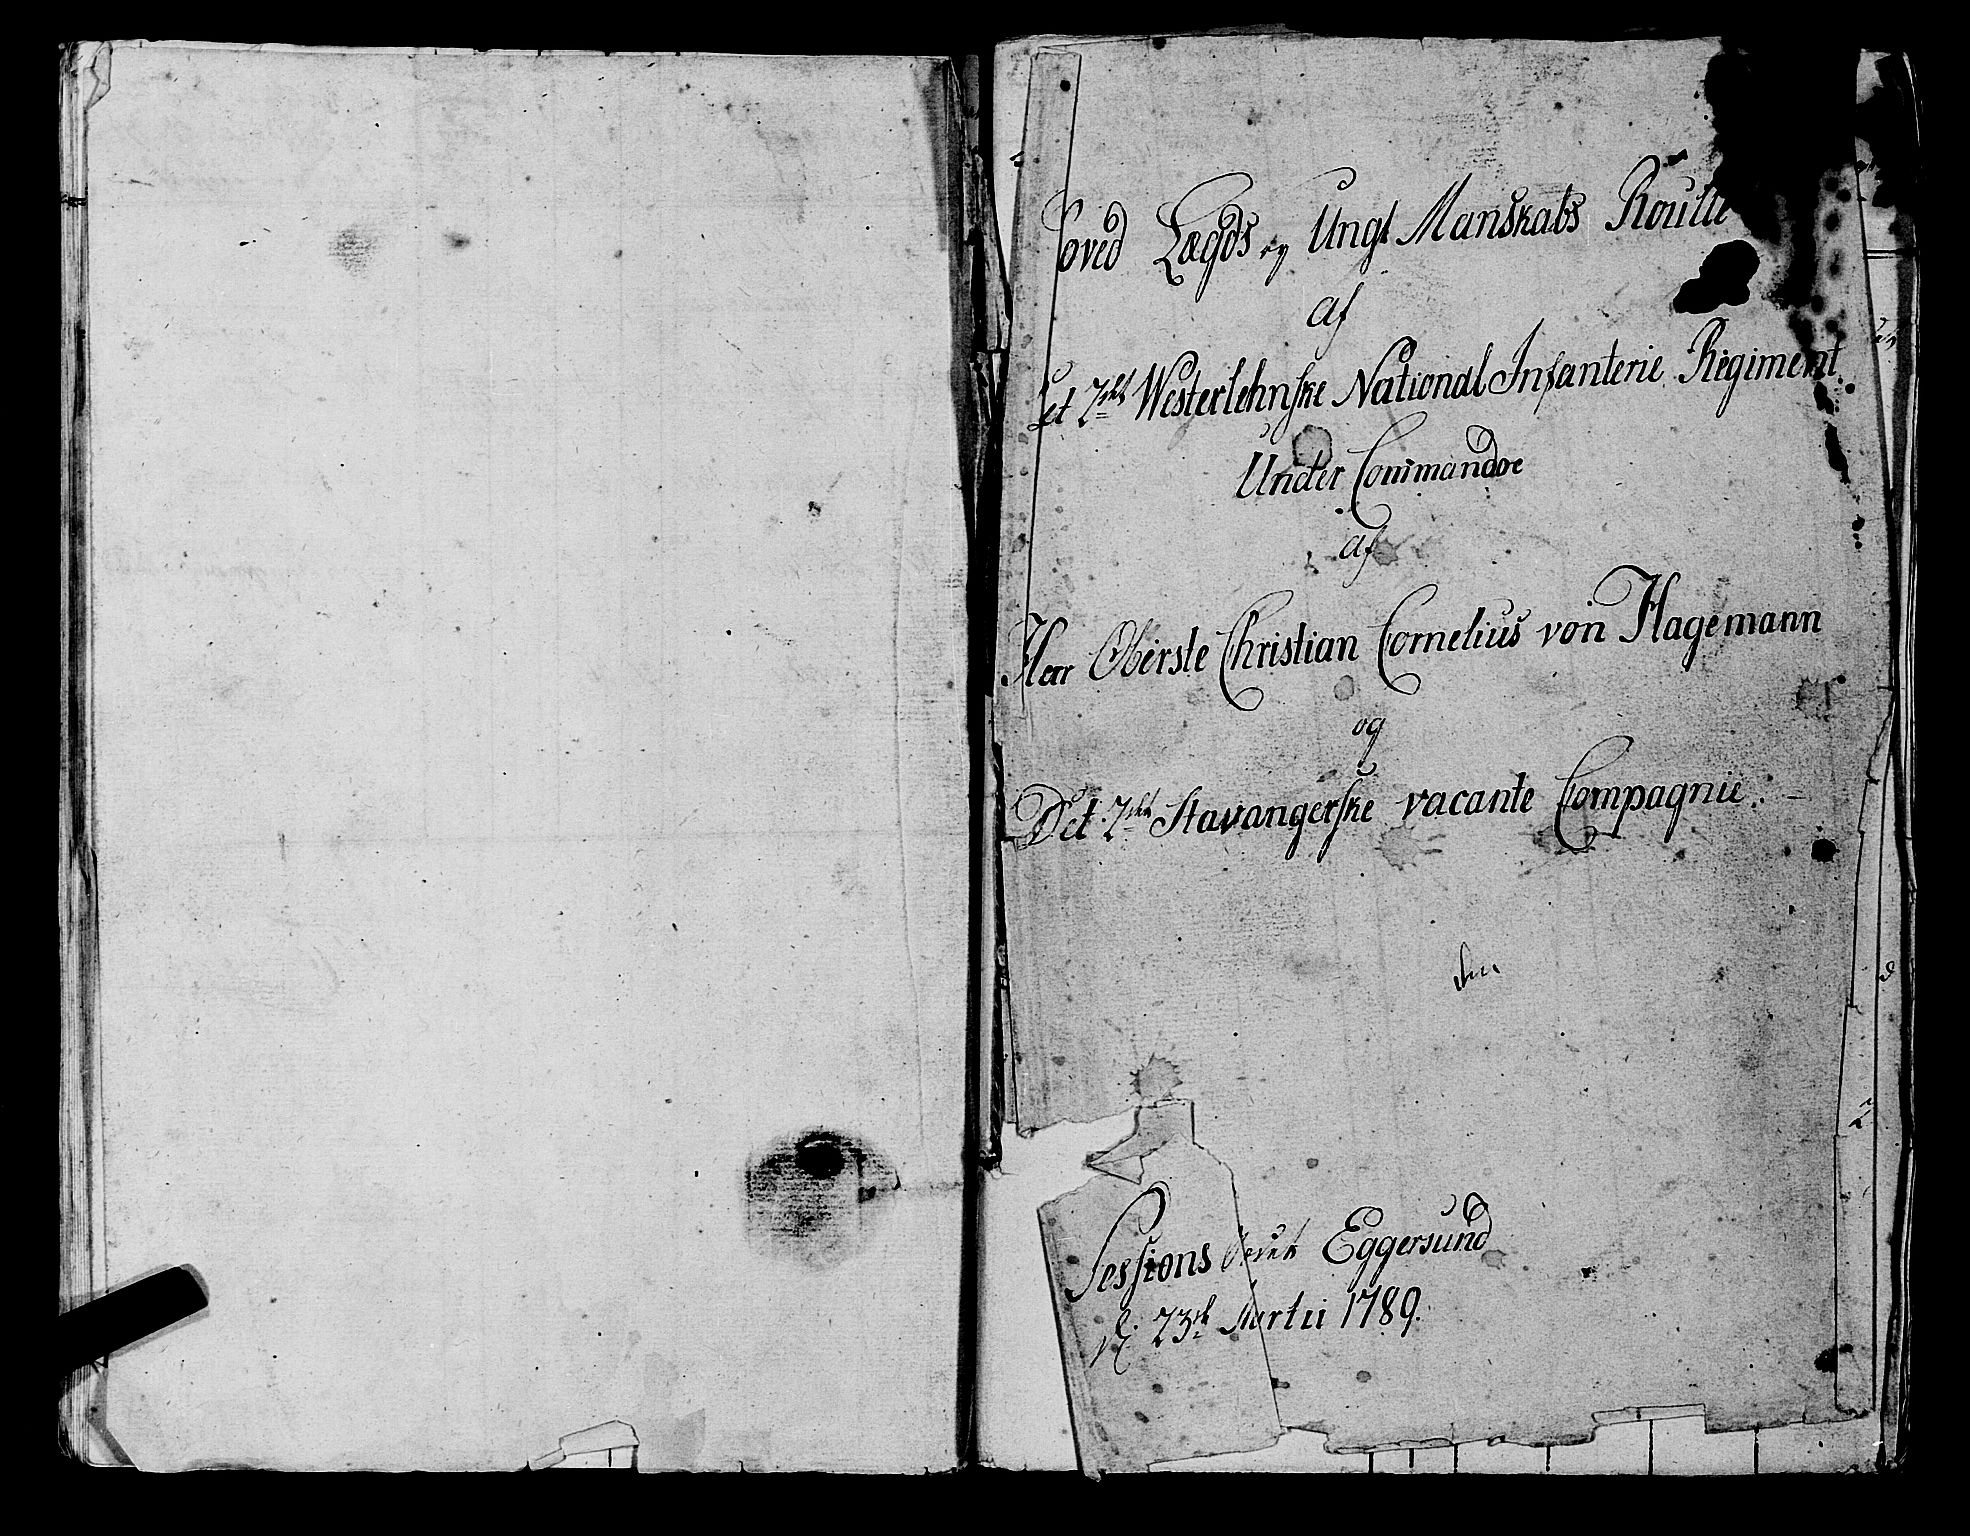 Hoved Lægds og Ungt Manskabs Roulle
af
Det 2det Westerlehnske National Infanterie Regiment
Under Commandoe
af
Herr Oberste Christian Cornelius von Hagemann
og
Det 2det Stavangerske vacante Compagnie.
den
Sessions Eggersund
d: 23de Martii 1789.